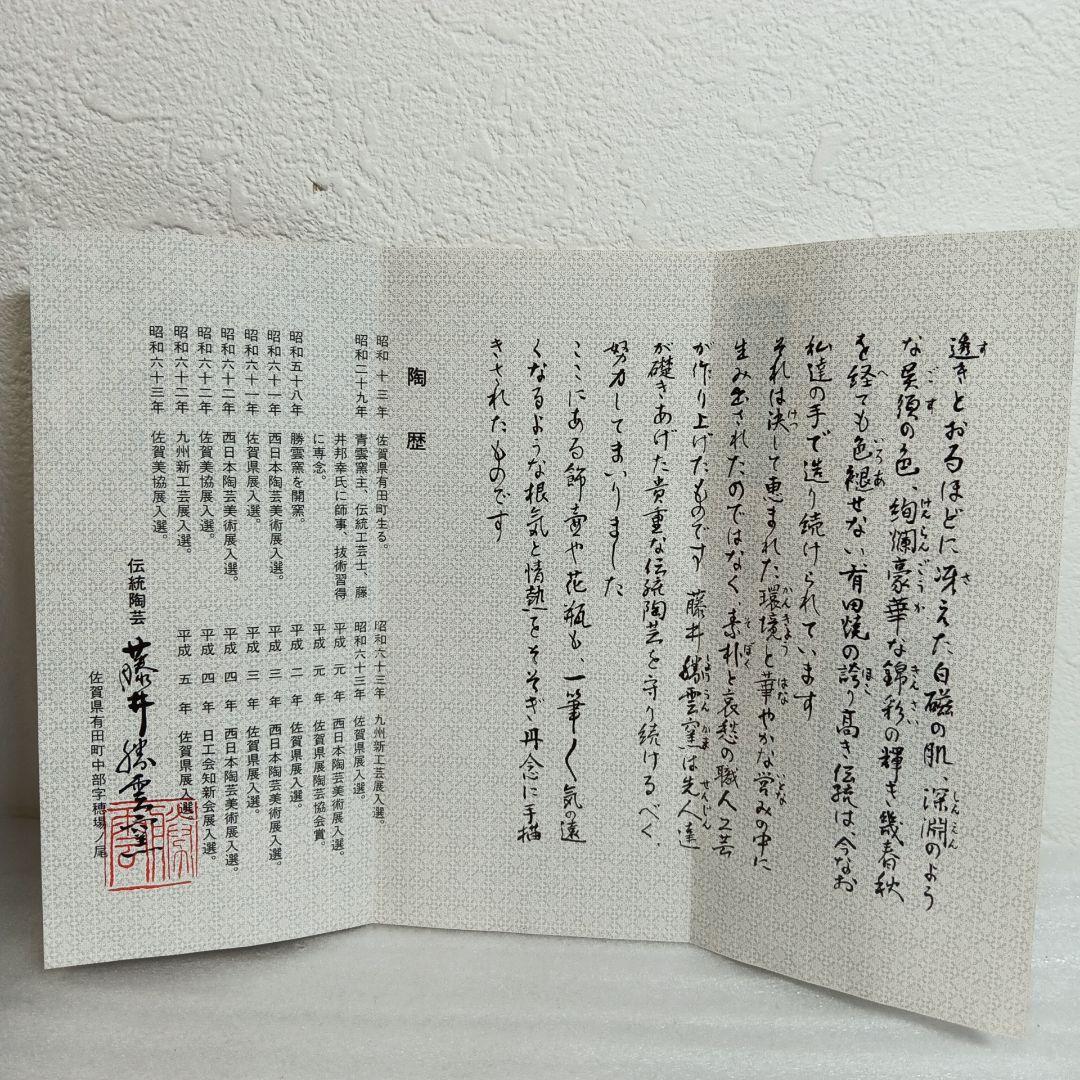 透きとおるほどに冴えた白磁の肌、深淵のよう
な呉須の色、絢爛豪華な錦彩の輝き幾春秋
を経ても色褪せない有田焼の誇り高き伝統は、今なお
私達の手で造り続けられています
それは決して恵まれた環境と華やかな営みの中に
生み出されたのではなく、素朴と哀愁の職人工芸
が作り上げたものです 藤井勝雲窯は先人達
が礎きあげた貴重な伝統陶芸を守り続けるべく、
努力してまいりました
ここにある飾壷や花瓶も、一筆く気の遠
くなるような根気と情熱をそそぎ丹念に手描
きされたものです
陶歴
昭和十三年 佐賀県有田町生る。
昭和二十九年 青雲窯主、伝統工芸士、藤
井邦幸氏に師事、技術習得
に専念。
昭和五十八年 勝雲窯を開窯。
昭和六十一年 西日本陶芸美術展入選。
昭和六十一年 佐賀県展入選。
昭和六十二年 西日本陶芸美術展入選。
昭和六十二年 佐賀美協展入選。
昭和六十二年 九州新工芸展入選。
昭和六十三年 佐賀美協展入選。
昭和六十三年 九州新工芸展入選。
昭和六十三年 佐賀県展入選。
平成元年 西日本陶芸美術展入選。
平成元年 佐賀県展陶芸協会賞。
平成二年 佐賀県展入選。
平成三年 西日本陶芸美術展入選。
平成三年 佐賀県展入選。
平成四年 西日本陶芸美術展入選。
平成四年 日工会知新会展入選。
平成五年 佐賀県展入選。
伝統陶芸 藤井勝雲窯
佐賀県有田町中部字穂場ノ尾